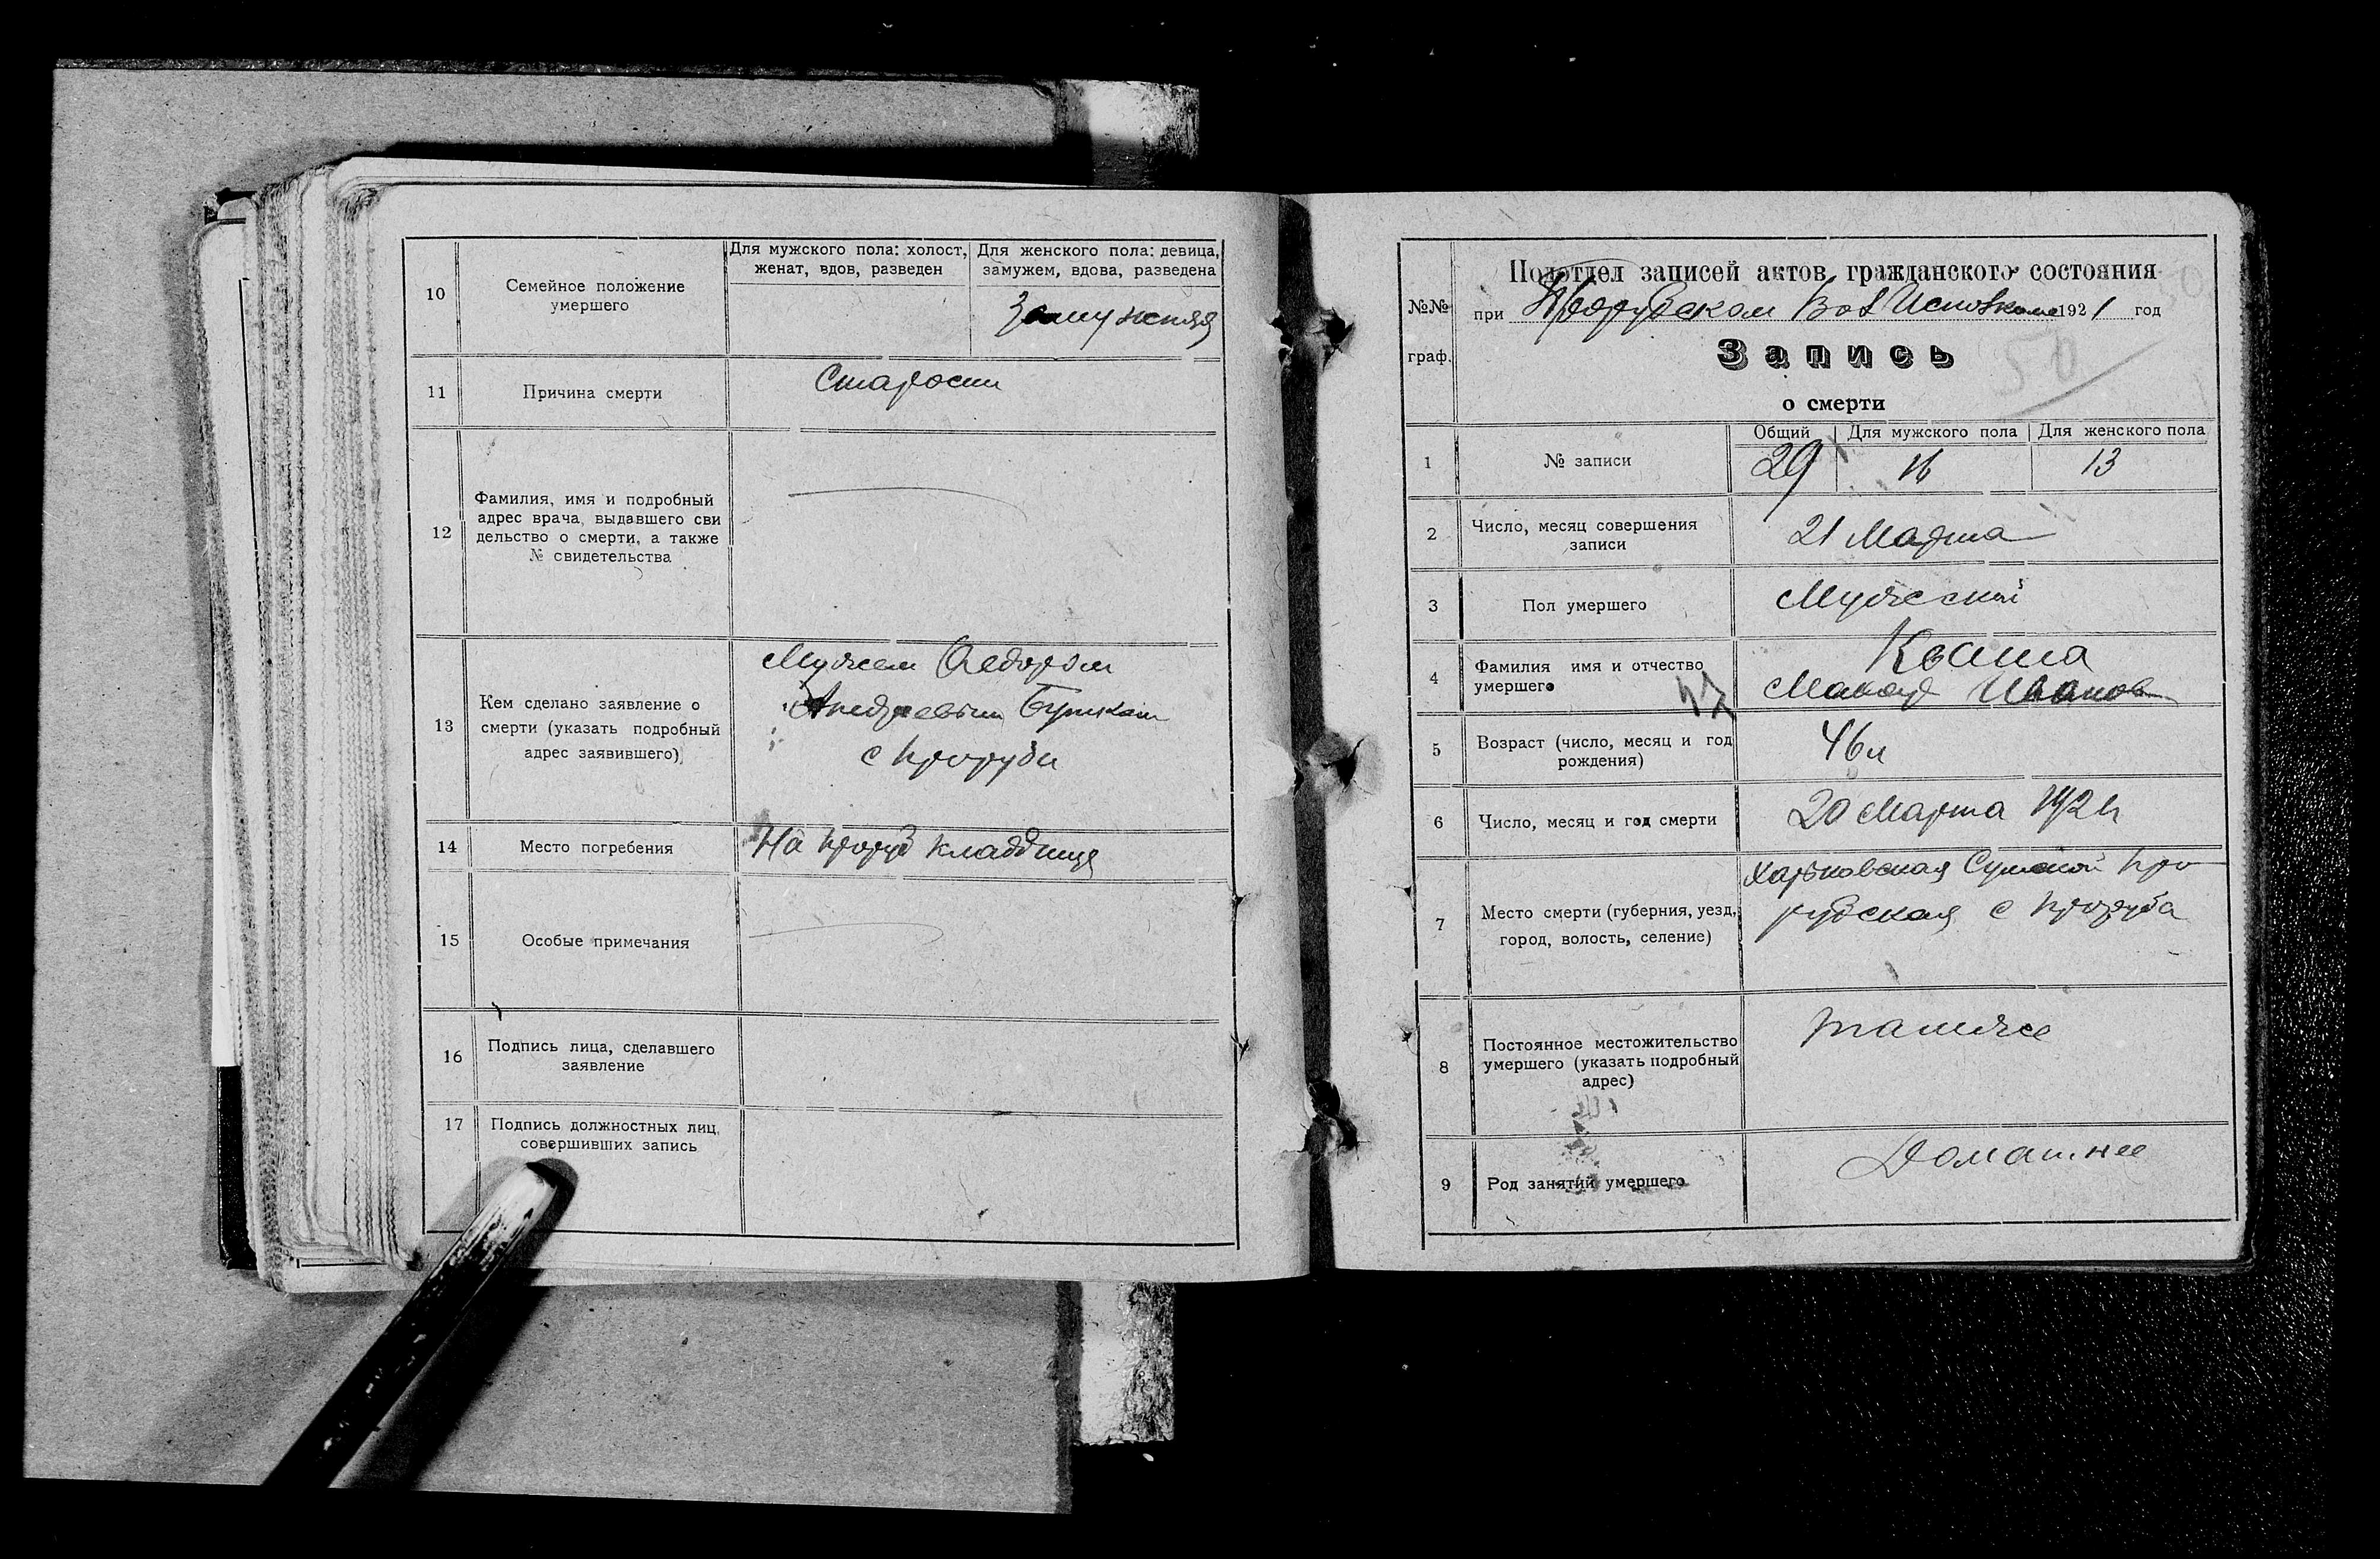 10
Семейное положение
умершего
Для мужского пола: холост,
женат, вдов, разведен
Для женского пола: девица,
замужем, вдова, разведена
Замужняя
11
Причина смерти
Старости
12
Фамилия, имя и подробный
адрес врача, выдавшего сви
дельство о смерти, а также
№ свидетельства
13
Кем сделано заявление о
смерти (указать подробный
адрес заявившего)
Мужем Федором
Андреевым
с Проруби
14
Место погребения
На Проруб кладбище
15
Особые примечания
16
Подпись лица, сделавшего
заявление
17
Подпись должностных лиц,
совершивших запись
№№
граф.
Подотдел записей актов гражданского состояния
при Прорубском Вол Исполкоме 1921 год
Запись
50
о смерти
1
№ записи
Общий
Для мужского пола
Для женского пола
29
16
13
2
Число, месяц совершения
записи
21 Марта
3
Пол умершего
Мужской
4
Фамилия имя и отчество
умершего
Кваша
Макар Иванов
5
Возраст (число, месяц и год
рождения)
46 л
6
Число, месяц и год смерти
20 Марта 1921
7
Место смерти (губерния, уезд,
город, волость, селение)
Харьковская Сумской Про
рубская с Проруба
8
Постоянное местожительство
умершего (указать подробный
адрес)
тамже
9
Род занятий умершего
Домашнее